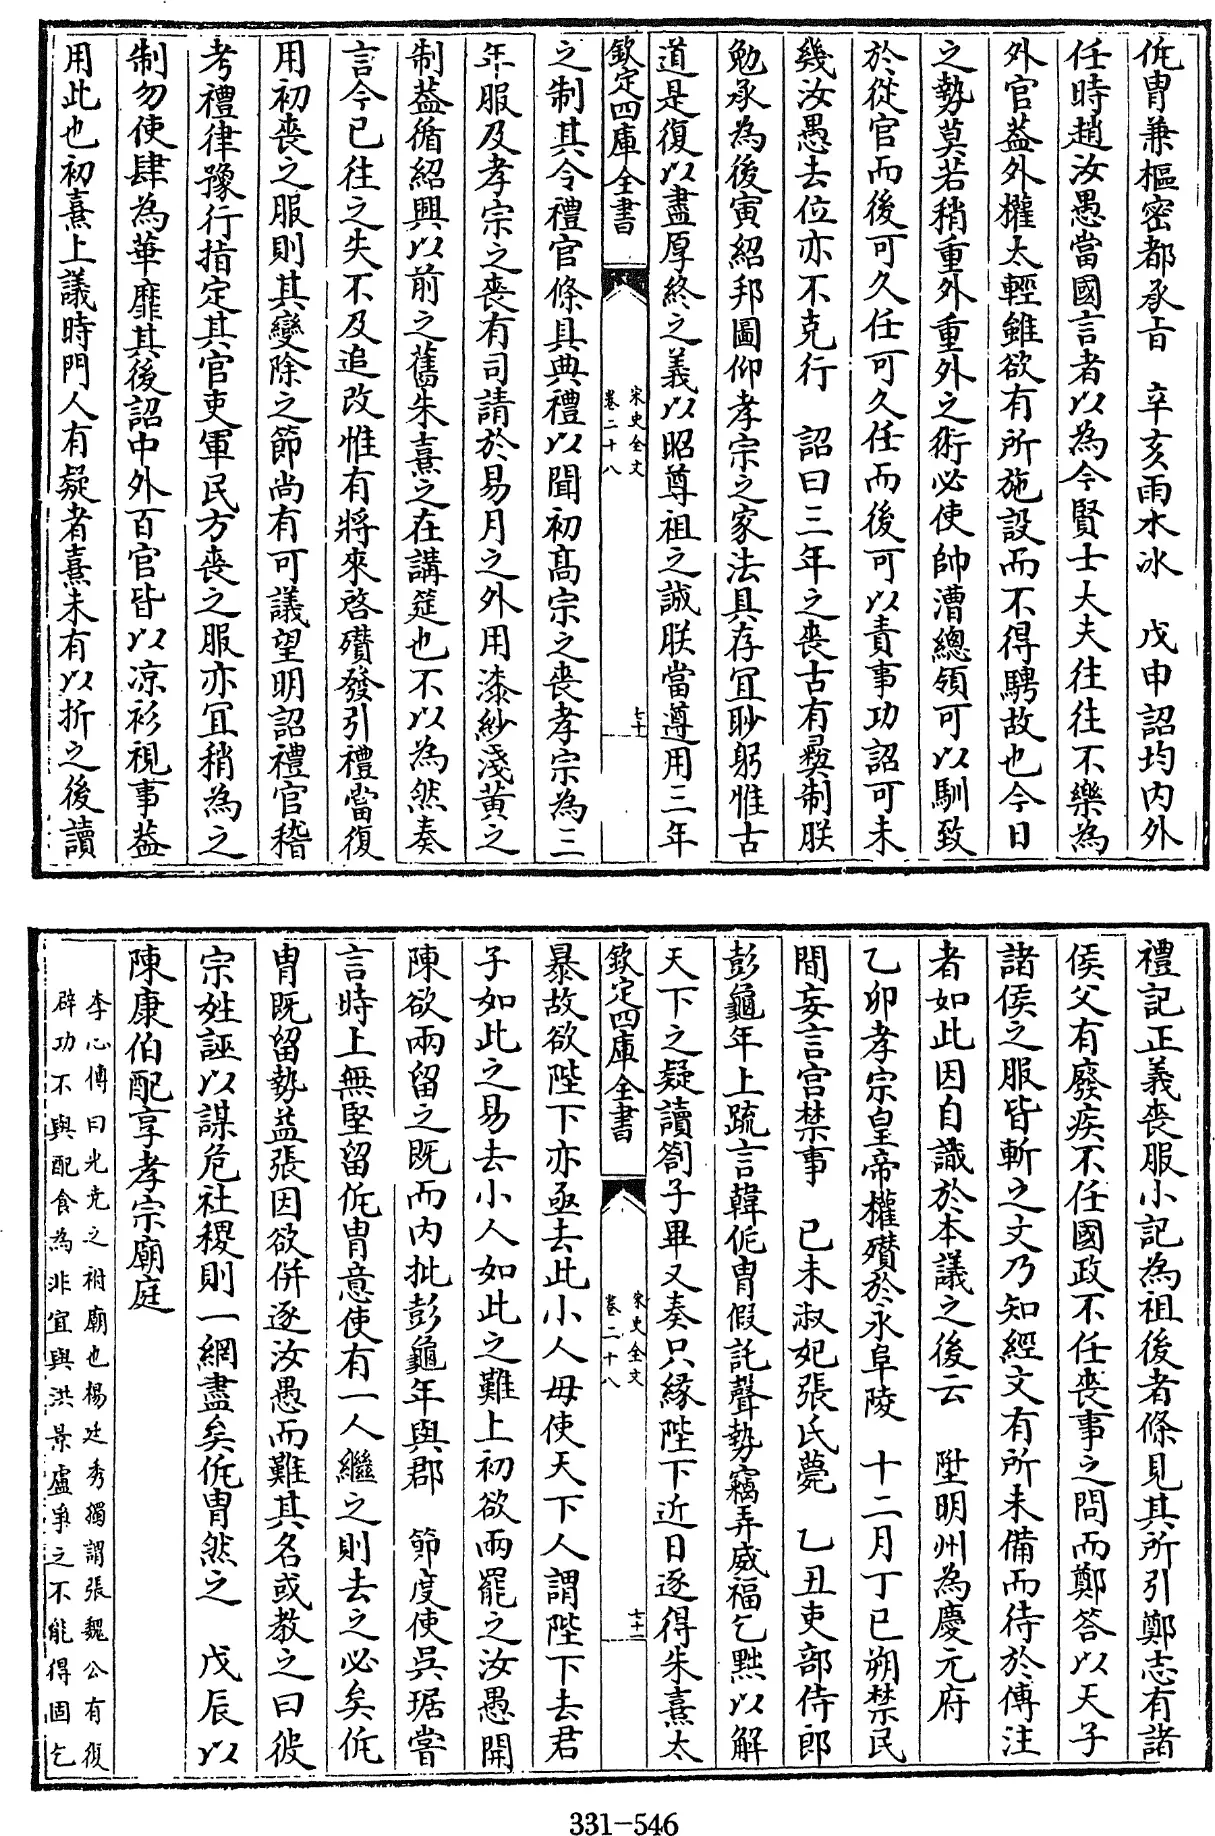 侂胄兼樞密都承旨　辛亥雨水冰　戊申詔均内外
任時趙汝愚當國言者以為今賢士大夫往往不樂為
外官葢外權太輕雖欲有所施設而不得騁故也今日
之勢莫若稍重外重外之術必使帥漕總領可以馴致
於從官而後可久任可久任而後可以責事功詔可未
幾汝愚去位亦不克行　詔曰三年之喪古有彛制朕
勉承為後寅紹邦圖仰孝宗之家法具存宜眇躬惟古
道是復以盡厚終之義以昭尊祖之誠朕當遵用三年
欽定四庫全書
宋史全文
卷二十八
七十
之制其令禮官條具典禮以聞初髙宗之喪孝宗為三
年服及孝宗之喪有司請於易月之外用漆紗淺黃之
制葢循紹興以前之舊朱熹之在講筵也不以為然奏
言今已往之失不及追改惟有將來啓殯發引禮當復
用初喪之服則其變除之節尚有可議望明詔禮官稽
考禮律豫行指定其官吏軍民方喪之服亦宜稍為之
制勿使肆為華靡其後詔中外百官皆以凉衫視事葢
用此也初熹上議時門人有疑者熹未有以折之後讀
禮記正義喪服小記為祖後者條見其所引鄭志有諸
侯父有廢疾不任國政不任喪事之問而鄭答以天子
諸侯之服皆斬之文乃知經文有所未備而待於傅注
者如此因自識於本議之後云　陞明州為慶元府
乙卯孝宗皇帝權殯於永阜陵　十二月丁巳朔禁民
間妄言宫禁事　已未淑妃張氏薨　乙丑吏部侍郎
彭龜年上疏言韓侂胄假託聲勢竊弄威福乞黜以解
天下之疑讀劄子畢又奏只緣陛下近日逐得朱熹太
欽定四庫全書
宋史全文
卷二十八
七十一
暴故欲陛下亦亟去此小人毋使天下人謂陛下去君
子如此之易去小人如此之難上初欲兩罷之汝愚開
陳欲兩留之既而内批彭龜年與郡　節度使吳琚嘗
言時上無堅留侂胄意使有一人繼之則去之必矣侂
胄既留勢益張因欲併逐汝愚而難其名或教之曰彼
宗姓誣以謀危社稷則一網盡矣侂胄然之　戊辰以
陳康伯配享孝宗廟庭
李心傳曰光堯之祔廟也楊廷秀獨謂張魏公有復
辟功不與配食為非宜與洪景盧爭之不能得固乞
331-546